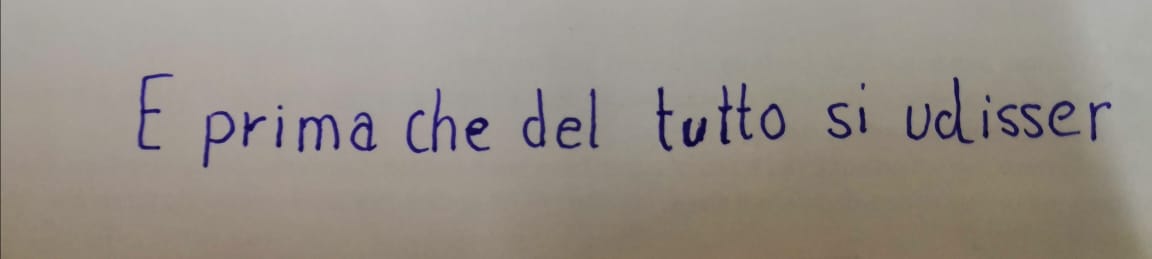 E prima che del tutto si udisser